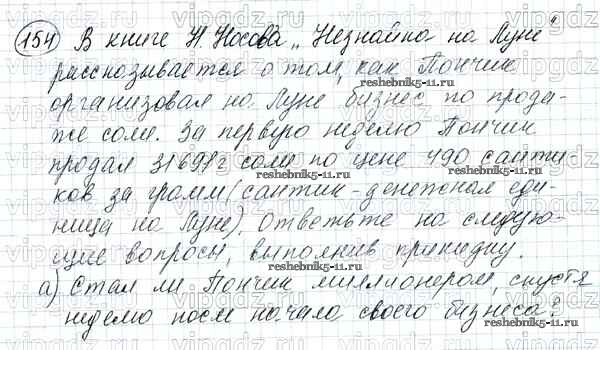 154 В книге Н. Носова „Незнайка на Луне"
рассказывается о том, как Пончик
reshebnik5-11.ru
организовал на Луне бизнес по прода-
же соли. За первую неделю Пончик
продал 31691 г соли по цене 490 санти
reshebnik5-11.ru
ков за грамм (сантик - денежная еди-
ница на Луне). Ответьте на следую-
щие вопросы, выполнив прикидку.
reshebnik5-11.ru
а) Стал ли Пончик миллионером, спустя
неделю после начала своего бизнеса?
reshebnik5-11.ru
vipgdz